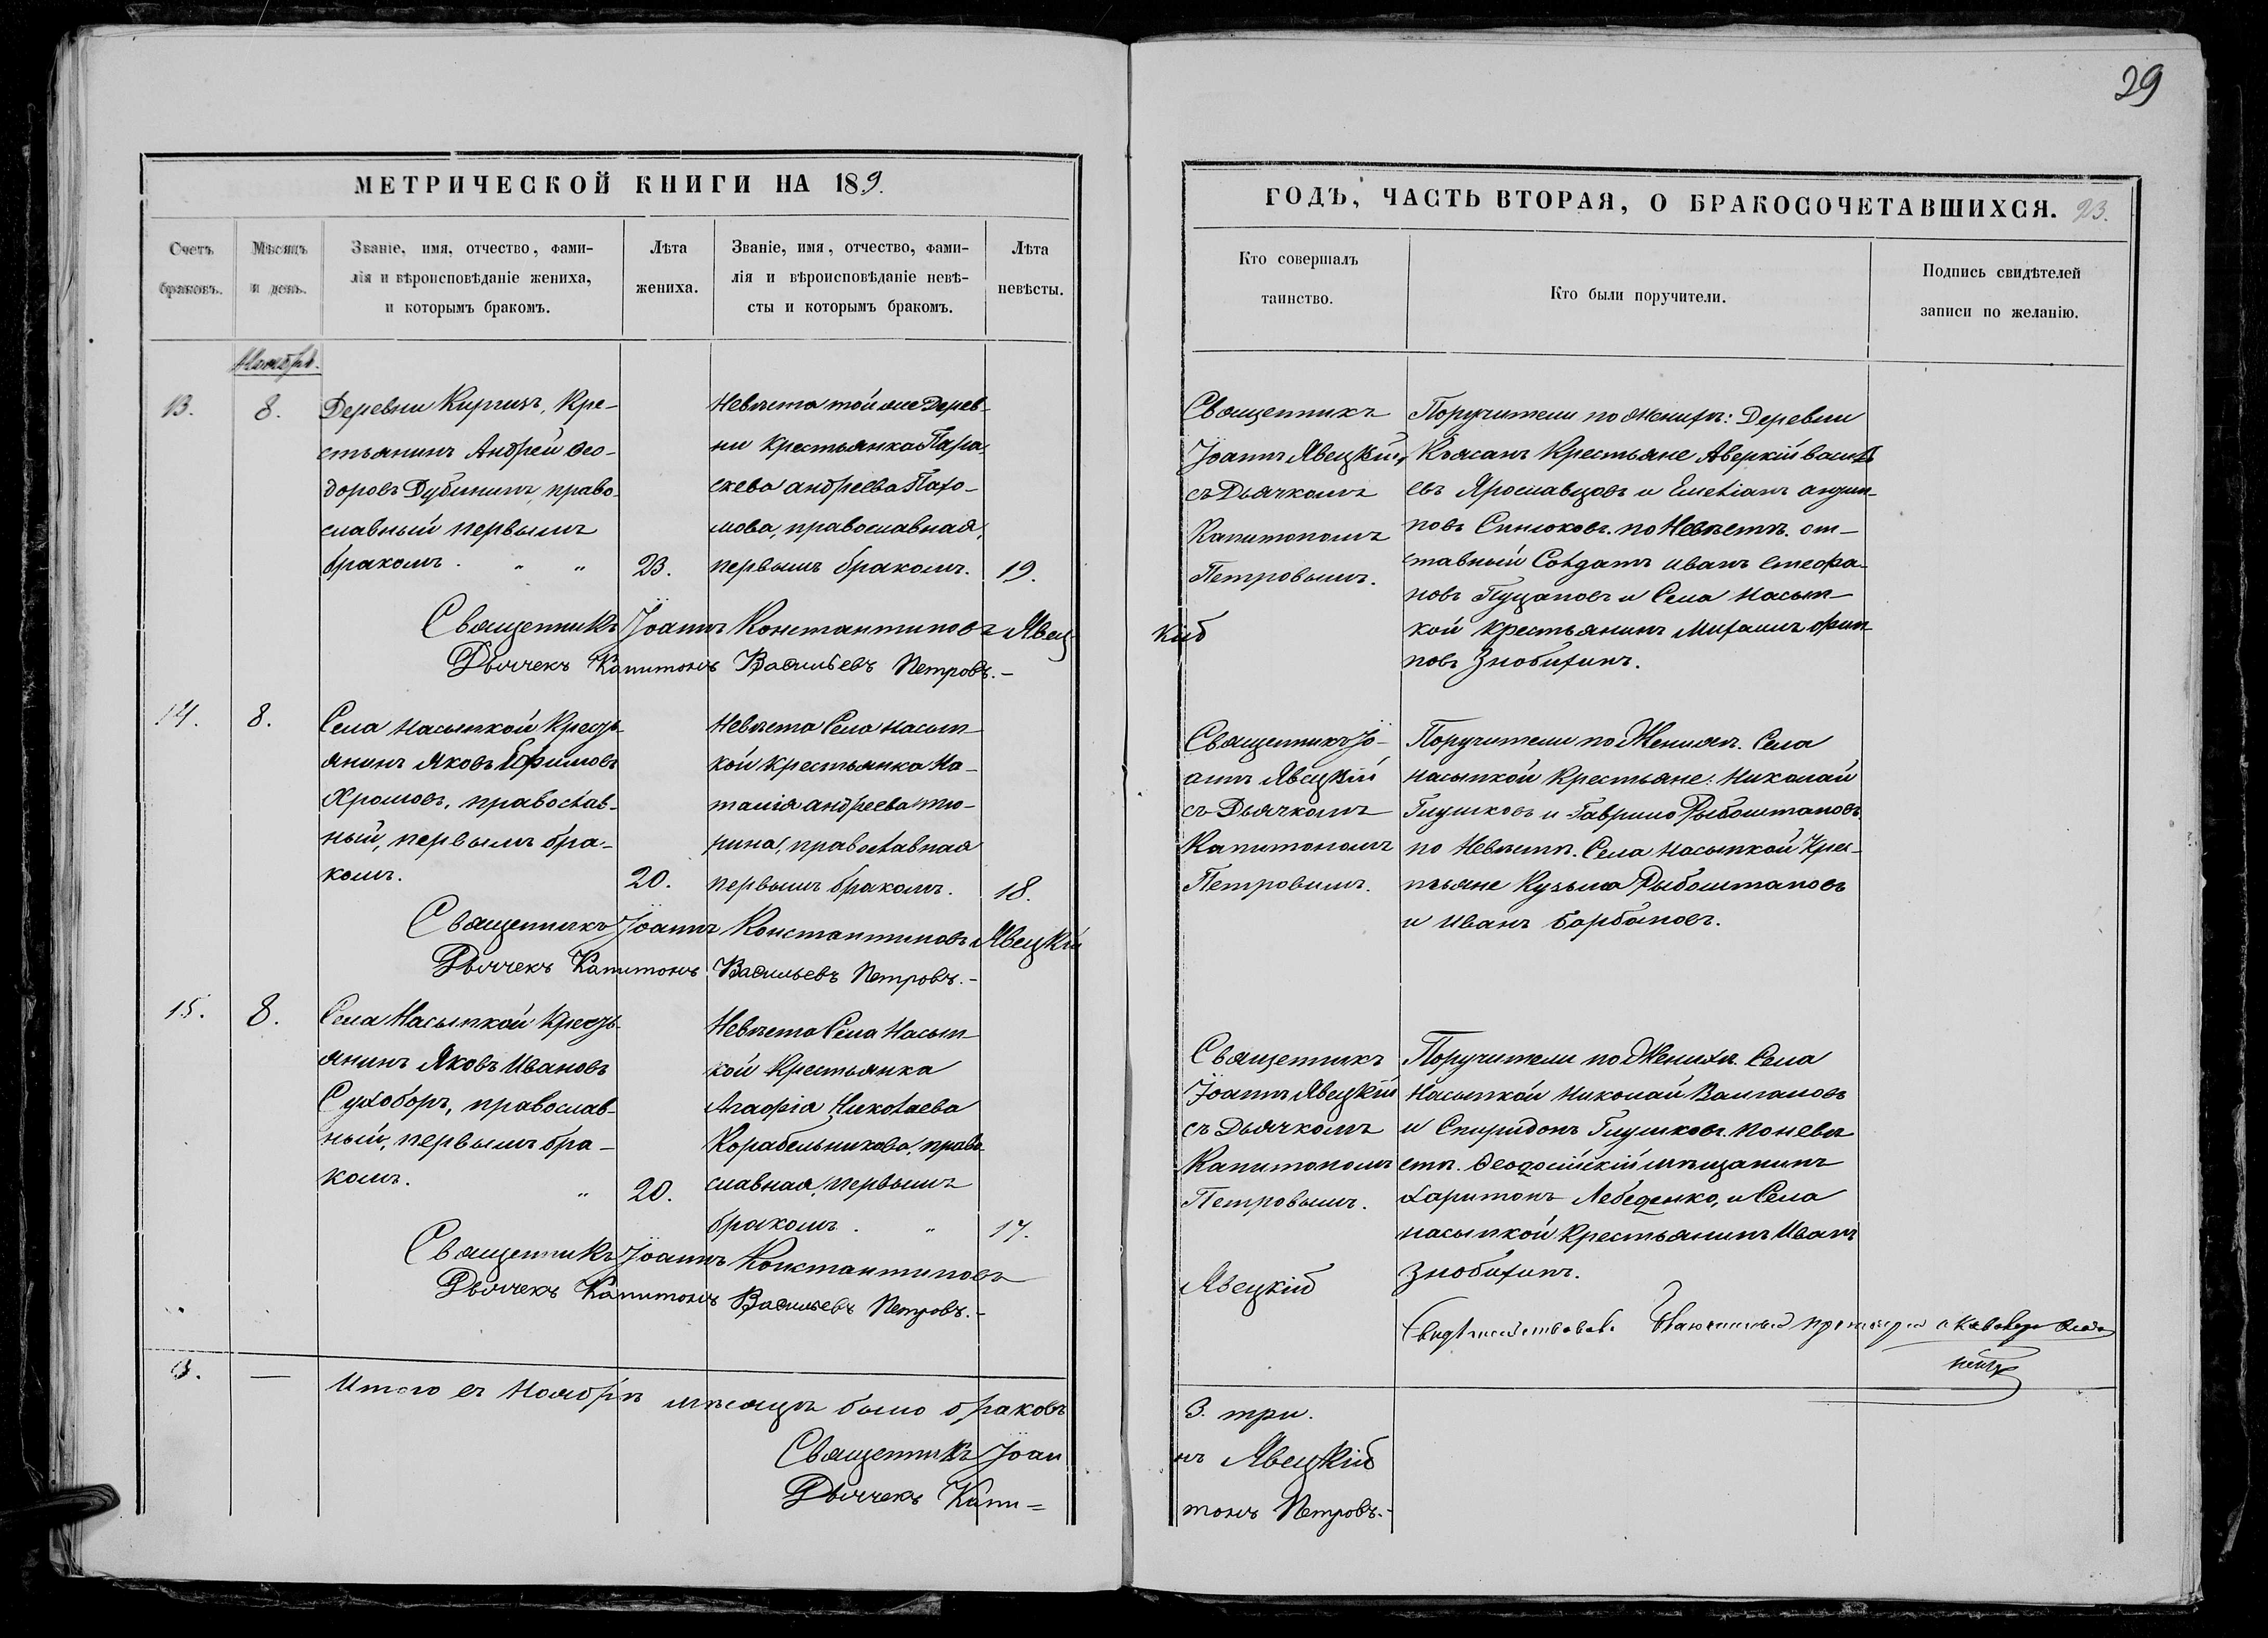 29
МЕТРИЧЕСКОЙ КНИГИ НА 18 9.
Счетъ браковъ.
Мѣсяцъ и день.
Званіе, имя, отчество, фами-
лія и вѣроисповѣданіе жениха,
и которымъ бракомъ.
Лѣта
жениха.
Званіе, имя, отчество, фами-
лія и вѣроисповѣданіе невѣ-
сты и которымъ бракомъ.
Лѣта
невѣсты.
ГОДЪ, ЧАСТЬ ВТОРАЯ, О БРАКОСОЧЕТАВШИХСЯ. 23.
Кто совершалъ
таинство.
Кто были поручители.
Подпись свидѣтелей
записи по желанію.
Ноября.
13.
8.
Деревни Киргизъ, Кре-
стьянинъ Андрей Ѳео-
доровъ Дубининъ, право-
славный первымъ
бракомъ. " "
23.
Невѣста той же Дерев-
ни Крестьянка Пара-
скева Андреева Пахо-
мова, православная,
первымъ бракомъ.
19.
Священникъ
Іоаннъ Явецкій,
съ Дьячкомъ
Капитономъ
Петровымъ.
Поручители по Женихѣ: Деревни
Крестьяне Аверкій Василь
евъ Ярославцовъ и
повъ по Невѣстѣ. от-
ставный Солдатъ Иванъ Стефа-
новъ и Села Насып-
кой Крестьянинъ Михаилъ
повъ Знобихинъ.
Священникъ Іоаннъ Константиновъ Явец
кій
Дьячекъ Капитонъ Васильевъ Петровъ.-
14.
8.
Села Насыпкой Кресть-
янинъ Яковъ Ефимовъ
Хромовъ, православ-
ный, первымъ бра-
комъ.
20.
Невѣста Села Насып-
кой Крестьянка На-
талія Андреева Тю-
рина, православная
первымъ бракомъ.
18.
Священникъ Іо-
аннъ Явецкій
съ Дьячкомъ
Капитономъ
Петровымъ.
Поручители по Женихѣ. Села
Насыпкой Крестьяне: Николай
Глушковъ и Гаврило Рыбоштановъ
по Невѣстѣ. Села Насыпкой Крес-
тьяне Кузьма Рыбоштановъ
и Иванъ Барбановъ.
Священникъ Іоаннъ Константиновъ Явецкій
Дьячекъ Капитонъ Васильевъ Петровъ.-
15.
8.
Села Насыпкой Кресть-
янинъ Яковъ Ивановъ
Сухоборъ, православ-
ный, первымъ бра-
комъ. "
20.
Невѣста Села Насып-
кой Крестьянка
Агафія Николаева
Корабельникова, право-
славная, первымъ
бракомъ. "
17.
Священникъ
Іоаннъ Явецкій
съ Дьячкомъ
Капитономъ
Петровымъ.
Поручители по Женихѣ. Села
Насыпкой Николай
и Спиридонъ Глушковъ. по невѣ
стѣ. Ѳеодосійскій мѣщанинъ
Харитонъ Лебеденко, и Села
насыпкой Крестьянинъ Иванъ
Знобихинъ.
Священникъ Іоаннъ Константиновъ
Явецкій
Дьячекъ Капитонъ Васильевъ Петровъ.-
Свидѣтельствовалъ
3. —
Итого въ Ноябрѣ мѣсяцѣ было браковъ
3. три.
Священникъ Іоан
нъ Явецкій
Дьячекъ Капи=
тонъ Петровъ.-